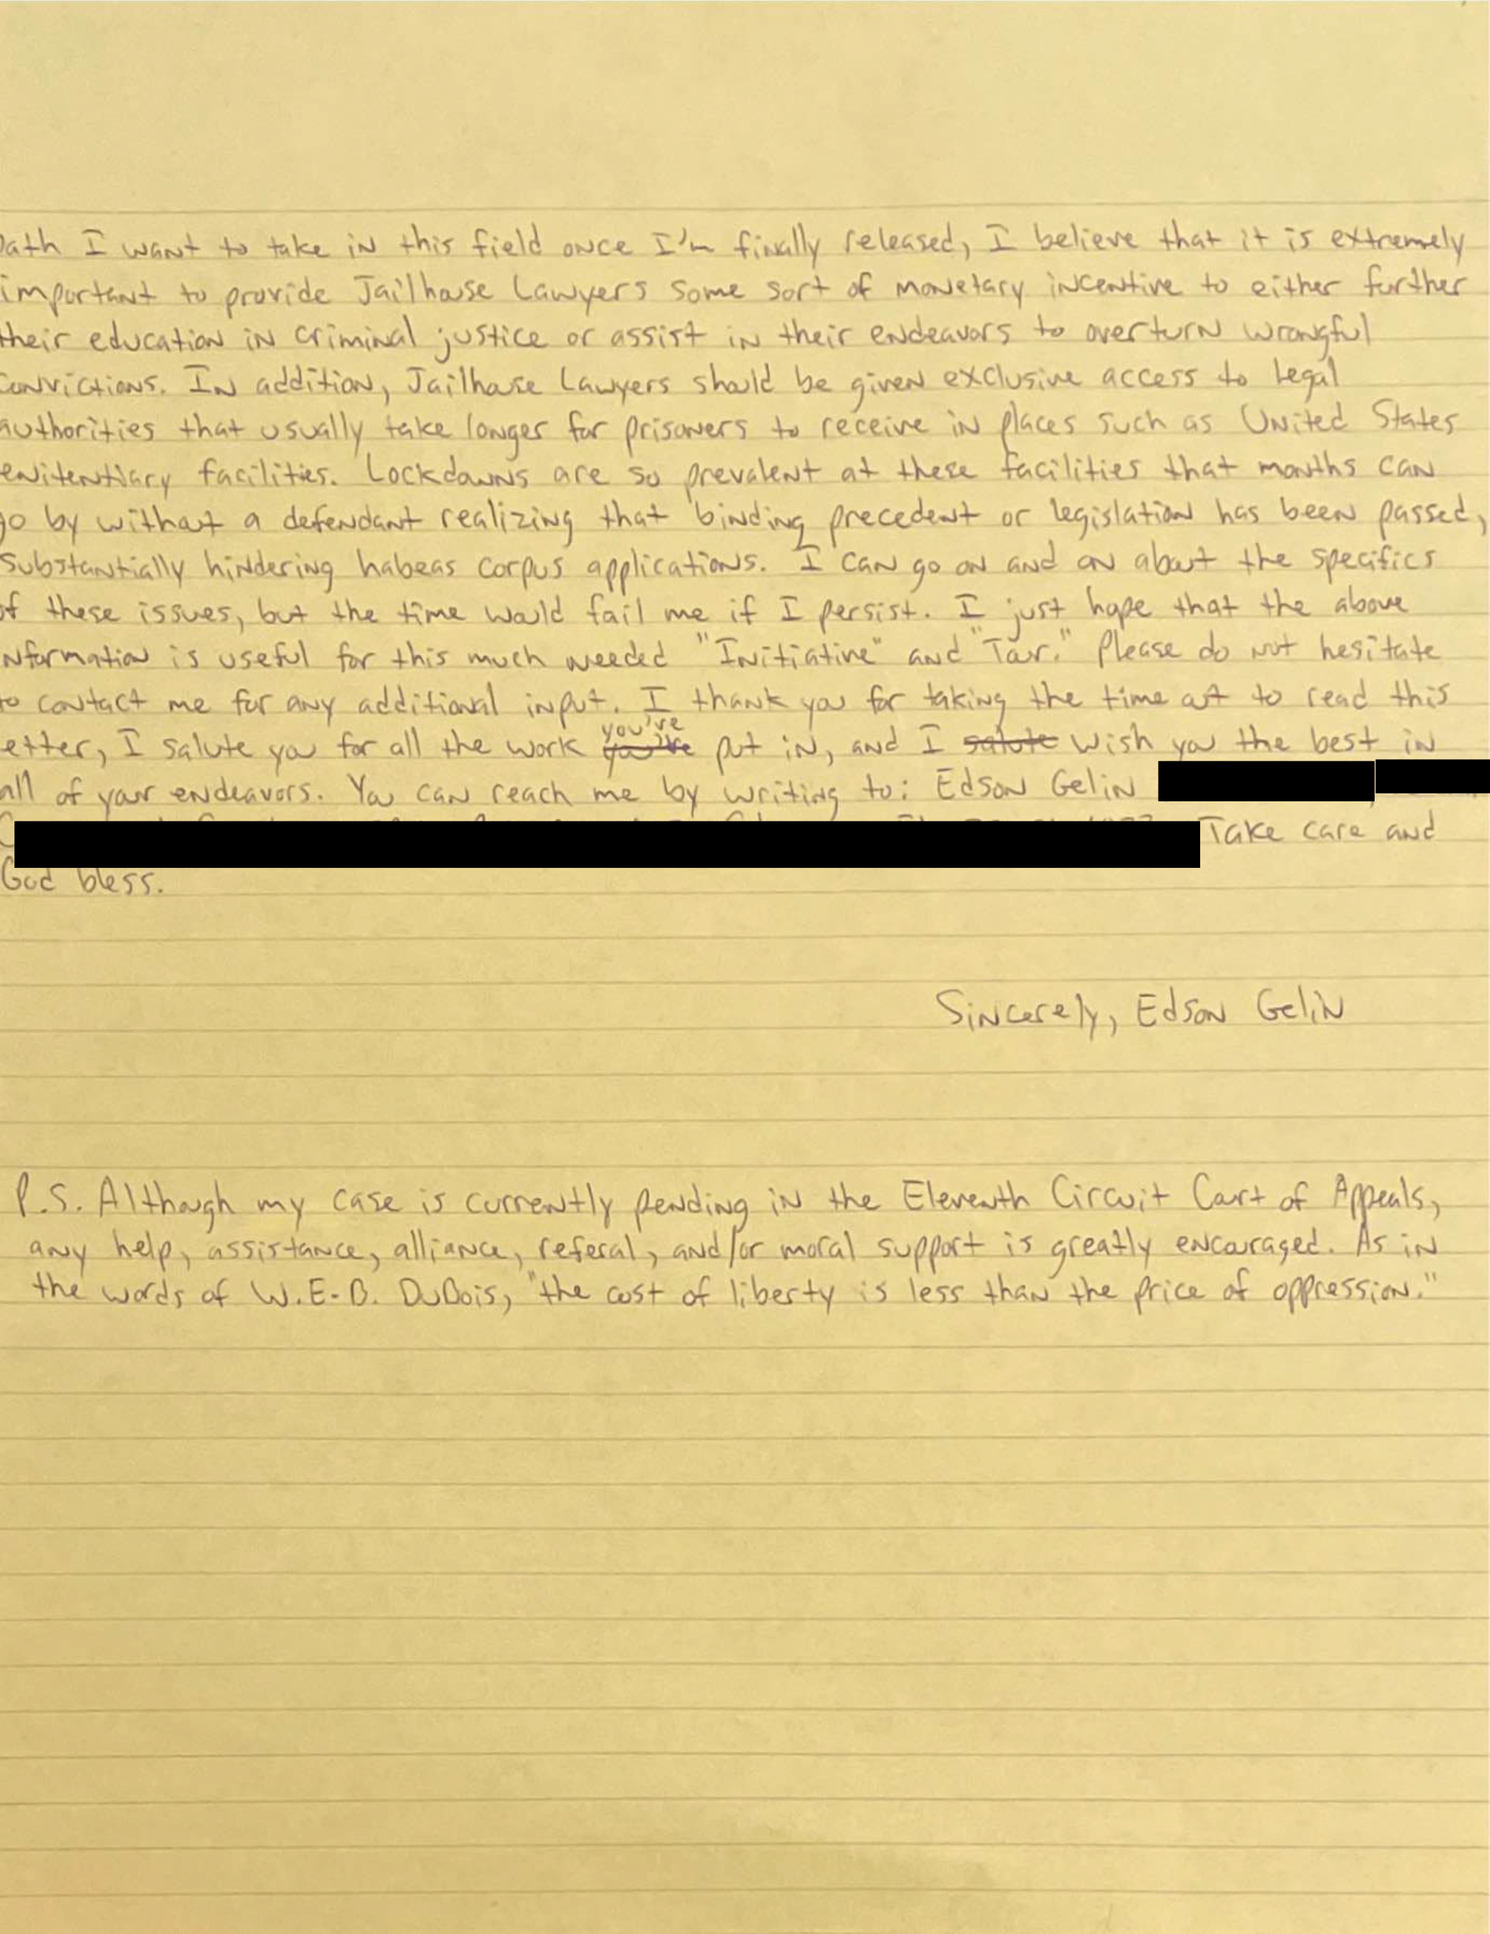 Path I want to take in this field once I'm finally released, I believe that it is extremely
important to provide Jailhouse Lawyers some sort of monetary incentive to either further
their education in criminal justice or assist in their endeavors to overturn wrongful
convictions. In addition, Jailhouse Lawyers should be given exclusive access to legal
authorities that usually take longer for prisoners to receive in places such as United States
enitentiary facilities. Lockdowns are so prevalent at these facilities that months can
go by without a defendant realizing that binding precedent or legislation has been passed,
substantially hindering habeas corpus applications. I can go on and on about the specifics
of these issues, but the time would fail me if I persist. I just hope that the above
nformation is useful for this much needed "Initiative" and "Tour." Please do not hesitate
to contact me for any additional input. I thank you for taking the time out to read this
etter, I salute you for all the work you've put in, and I wish you the best in
all of your endeavors. You can reach me by writing to: Edson Gelin
Take care and
God bless.
Sincerely, Edson Gelin
P.S. Although my case is currently pending in the Eleventh Circuit Court of Appeals,
any help, assistance, alliance, referal, and/or moral support is greatly encouraged. As in
the words of W.E.B. DuBois, "the cost of liberty is less than the price of oppression."